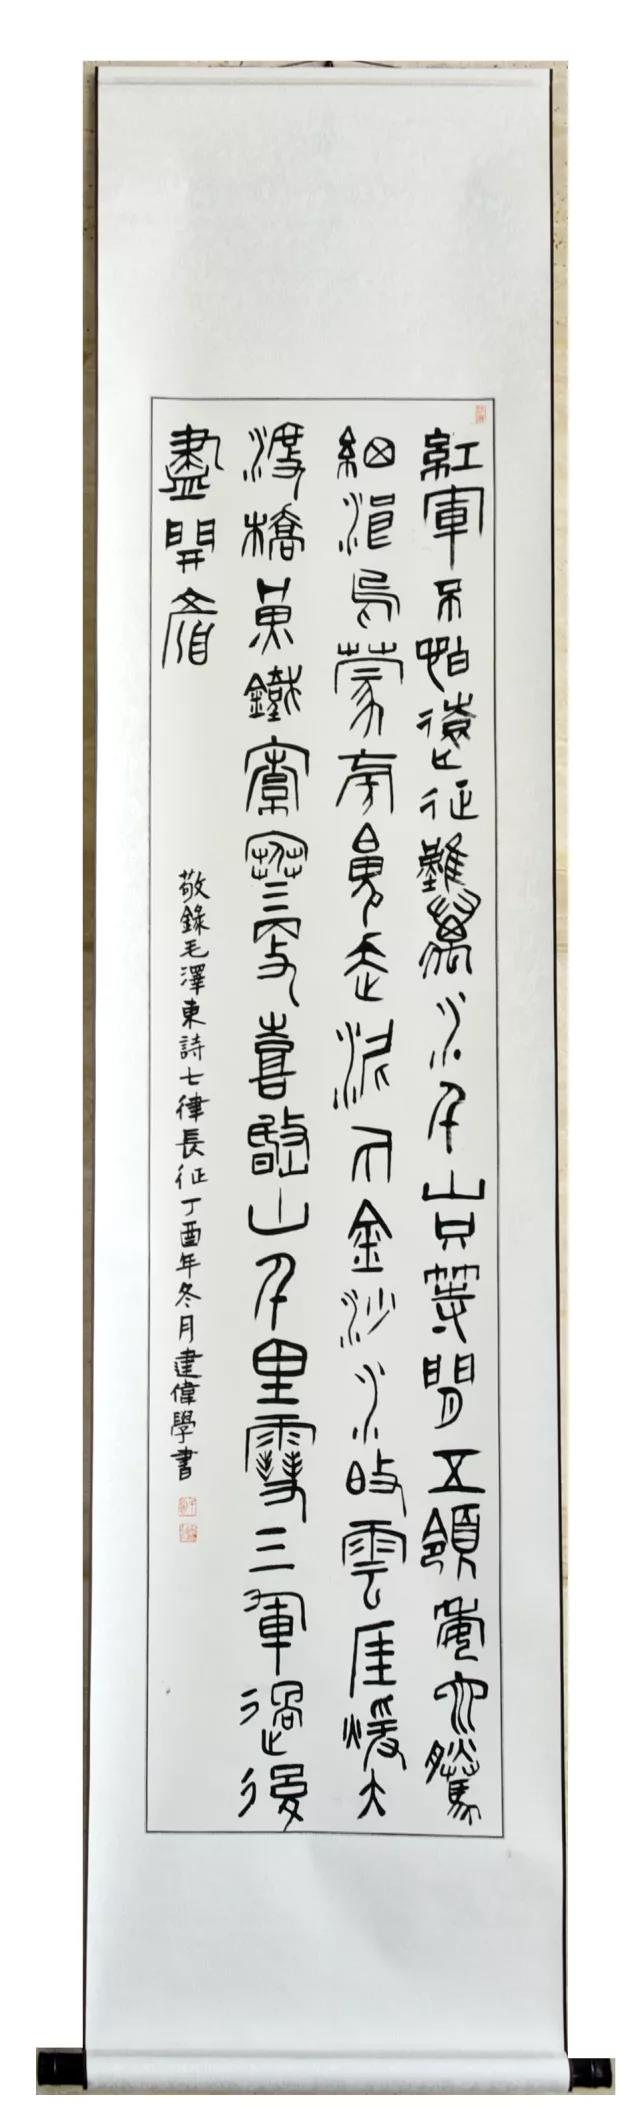 紅軍不怕遠征難萬水千山只等閒五領逶迤騰
細浪烏蒙磅礴走泥丸金沙水拍雲崖暖大
渡橋橫鐵索寒更喜岷山千里雪三軍過後
盡開顏
敬錄毛澤東詩七律長征丁酉年冬月建偉學書